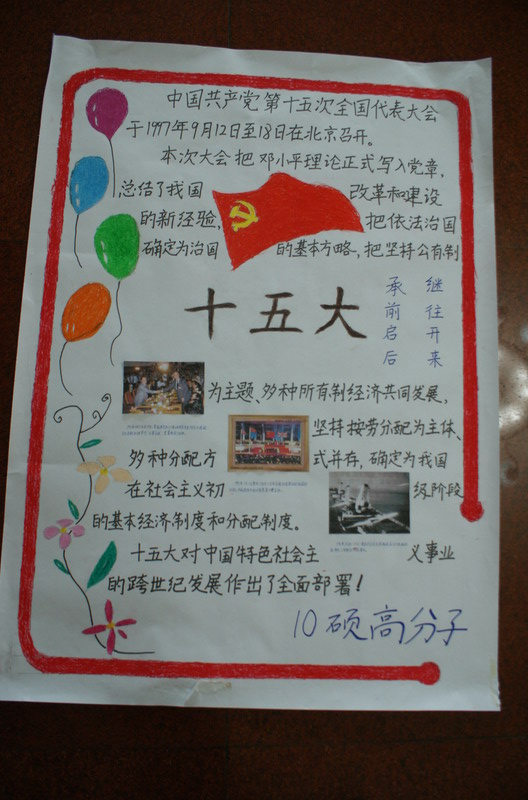 中国共产党第十五次全国代表大会
于1997年9月12日至18日在北京召开。
本次大会把邓小平理论正式写入党章，
总结了我国 改革和建设
的新经验， 把依法治国
确定为治国 的基本方略，把坚持公有制
十五大
继往开来
承前启后
为主题、多种所有制经济共同发展，
坚持按劳分配为主体、
多种分配方 式并存，确定为我国
在社会主义初 级阶段
的基本经济制度和分配制度。
十五大对中国特色社会主 义事业
的跨世纪发展作出了全面部署！
10硕高分子